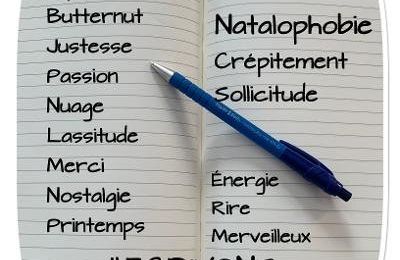 Butternut
Justesse
Passion
Nuage
Lassitude
Merci
Nostalgie
Printemps
Natalophobie
Crépitement
Sollicitude
Énergie
Rire
Merveilleux